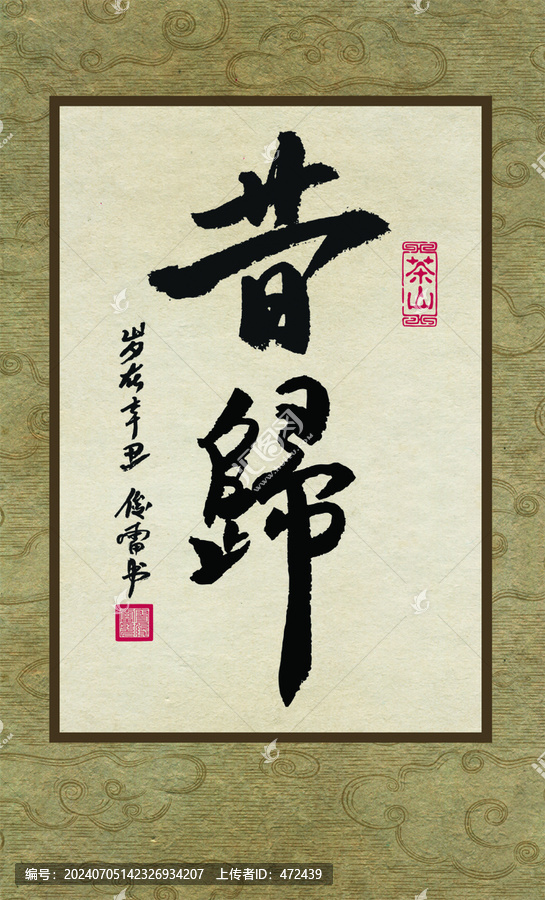 昔歸
茶山
岁在辛丑
俊雷书
编号：20240705142326934207 上传者ID：472439